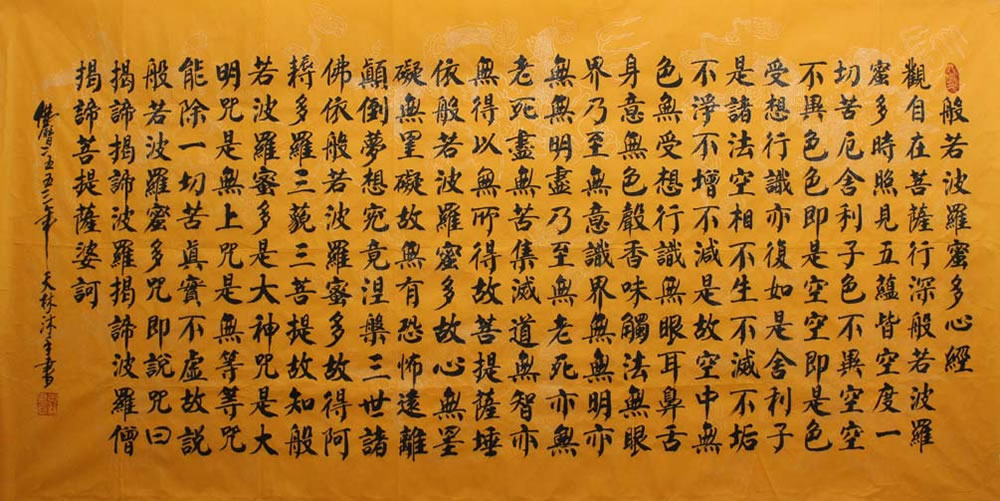 般若波羅蜜多心經
觀自在菩薩行深般若波羅
蜜多時照見五蘊皆空度一
切苦厄舍利子色不異空空
不異色色即是空空即是色
受想行識亦復如是舍利子
是諸法空相不生不滅不垢
不淨不增不減是故空中無
色無受想行識無眼耳鼻舌
身意無色聲香味觸法無眼
界乃至無意識界無無明亦
無無明盡乃至無老死亦無
老死盡無苦集滅道無智亦
無得以無所得故菩提薩埵
依般若波羅蜜多故心無罣
礙無罣礙故無有恐怖遠離
顛倒夢想究竟涅槃三世諸
佛依般若波羅蜜多故得阿
耨多羅三藐三菩提故知般
若波羅蜜多是大神咒是大
明咒是無上咒是無等等咒
能除一切苦真實不虛故説
般若波羅蜜多咒即說咒曰
揭諦揭諦波羅揭諦波羅僧
揭諦菩提薩婆訶
佛曆二五五二年 天林沐手書